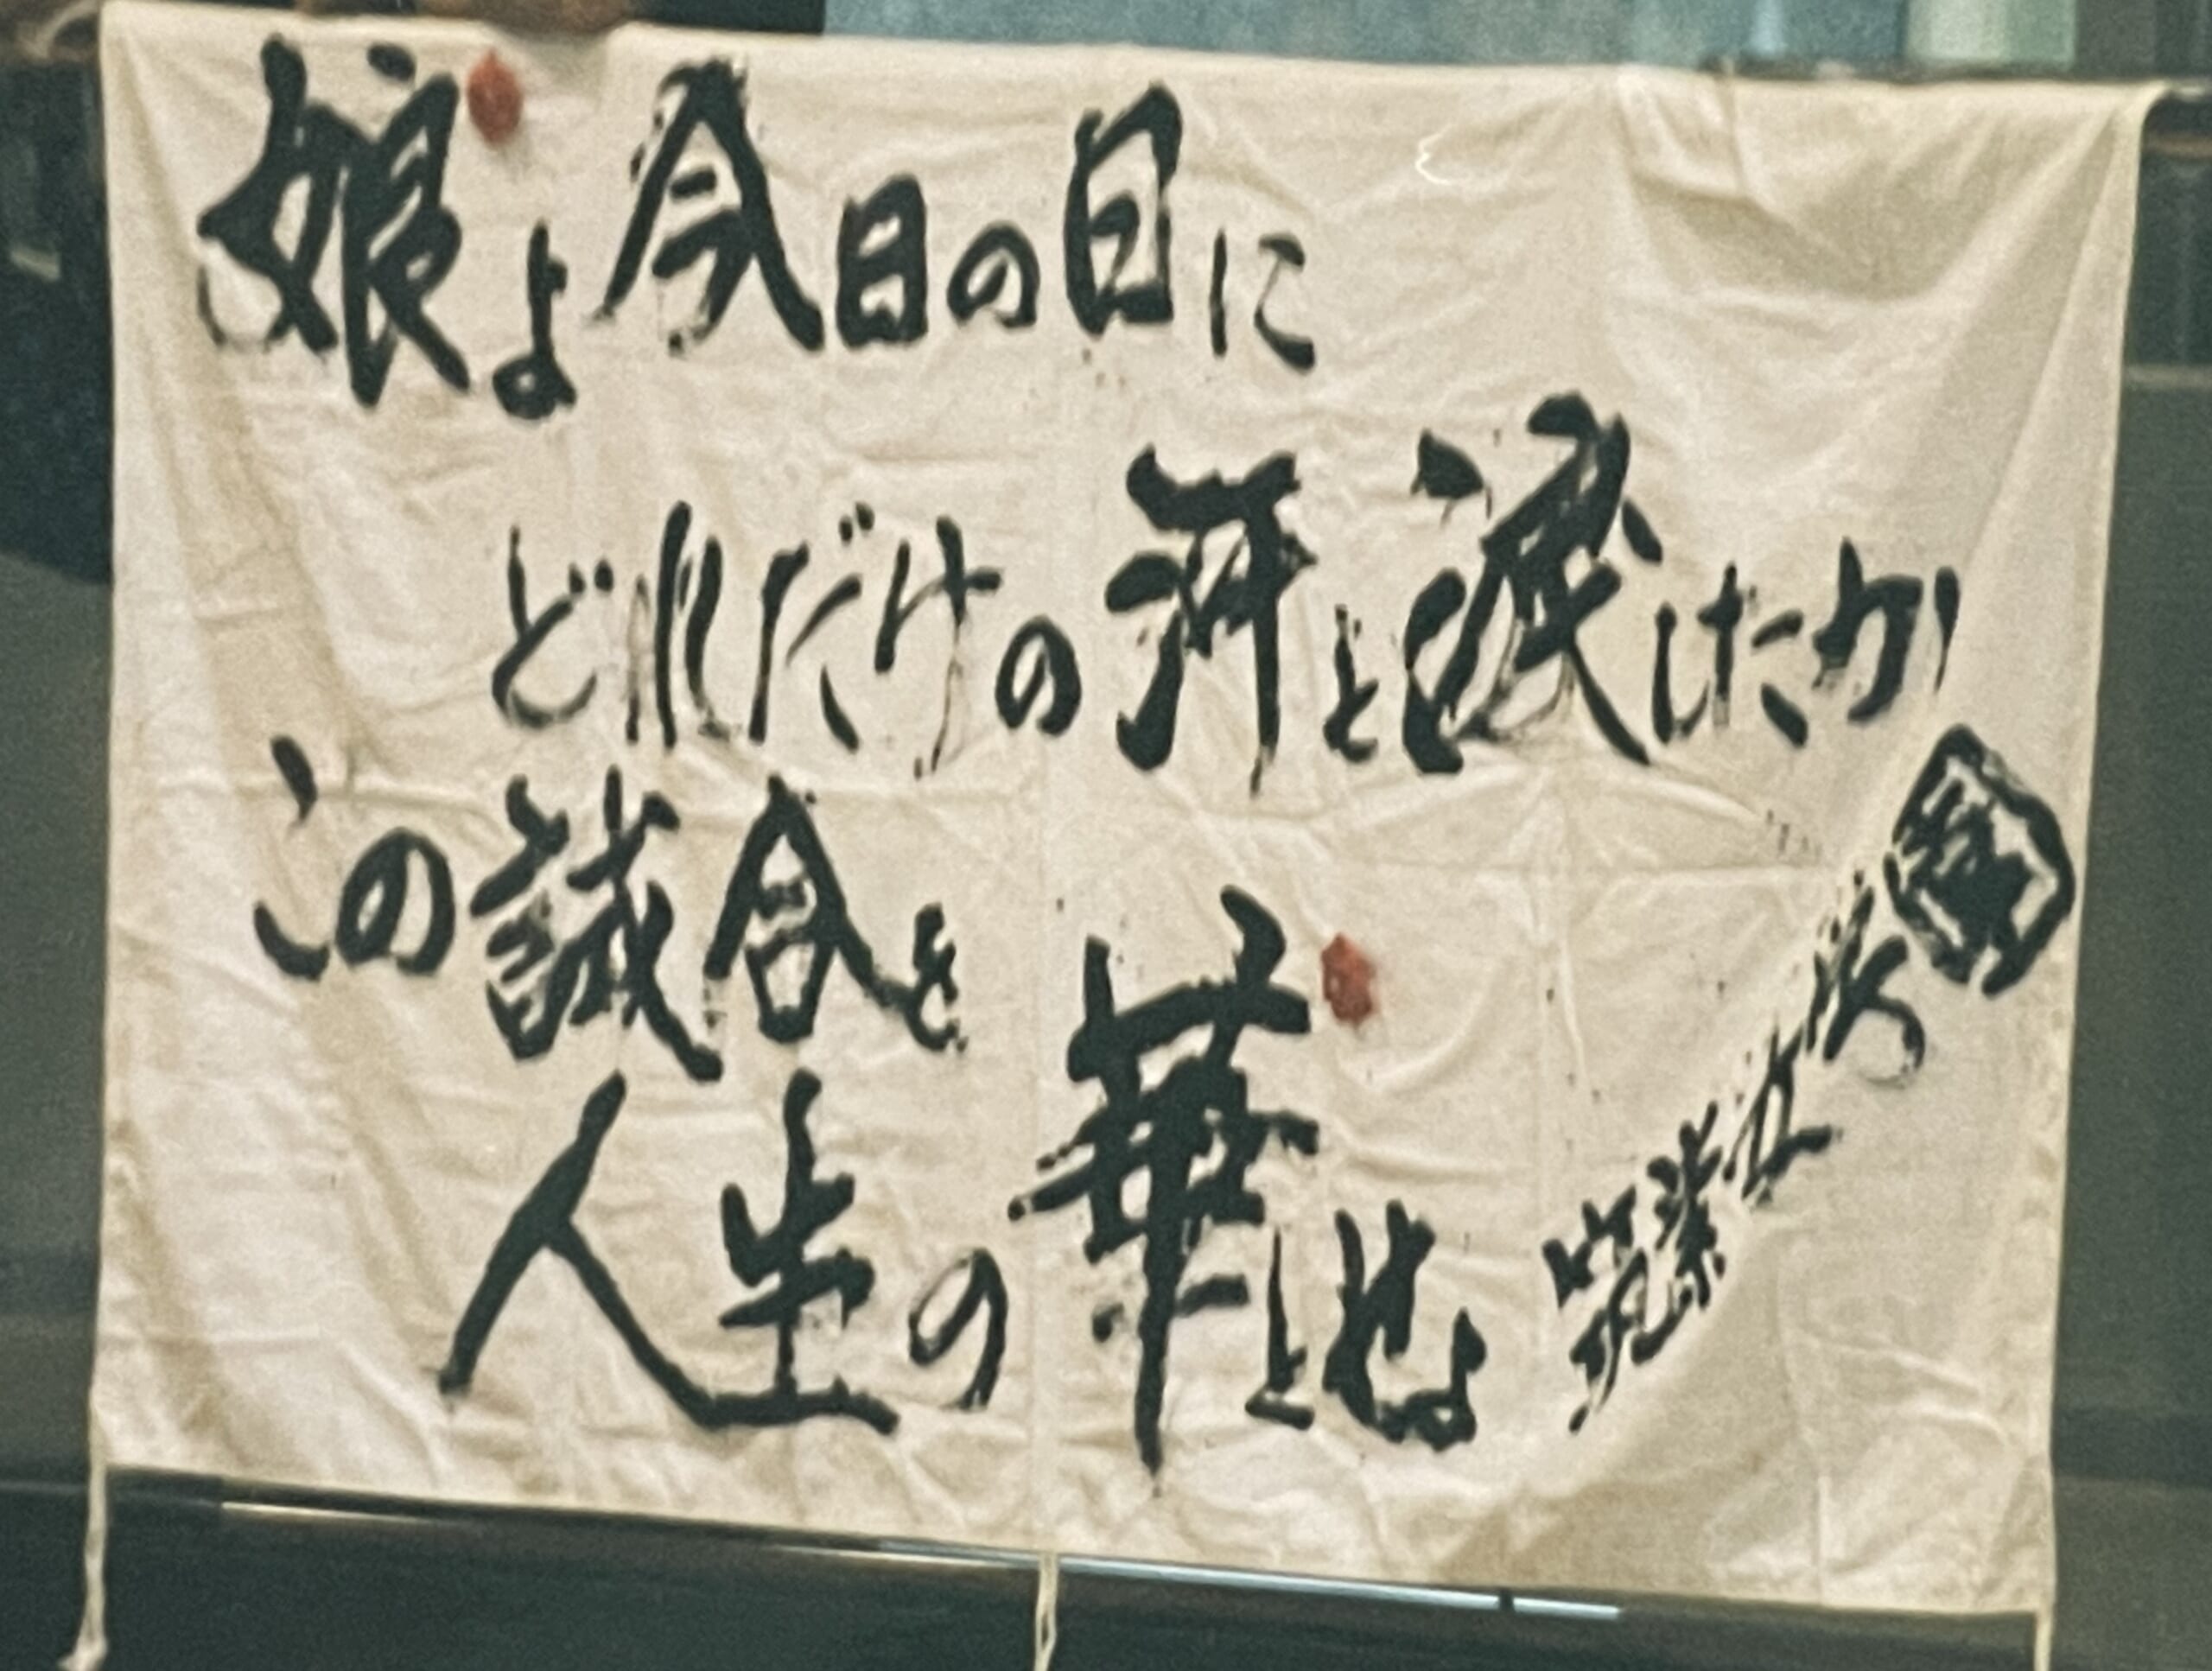 娘よ今日の日に
どれだけの汗と涙したか
この試合を
人生の華とせよ
筑紫女